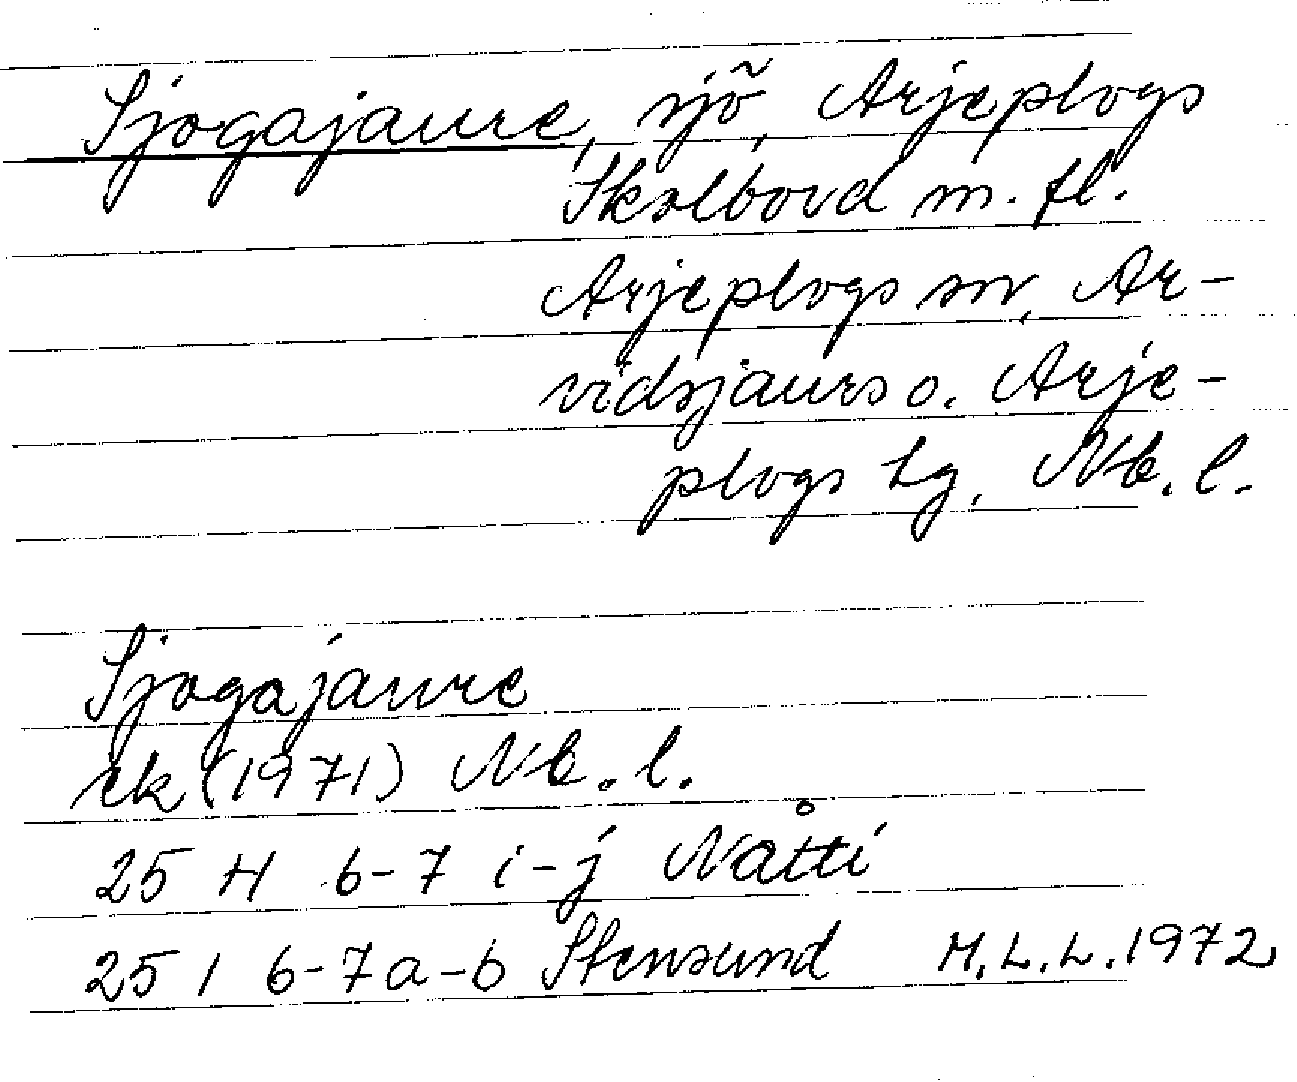 Sjogajaure, sjö, Arjeplogs
Skolbord m. fl.
Arjeplogs sn, Ar-
vidsjaurs o. Arje-
plogs lg, Nb. l.
Sjogajaure
ek (1971) Nb. l.
25 H 6-7 i-j Nåtti
25 I 6-7 a-b Stensund M.L.L. 1972